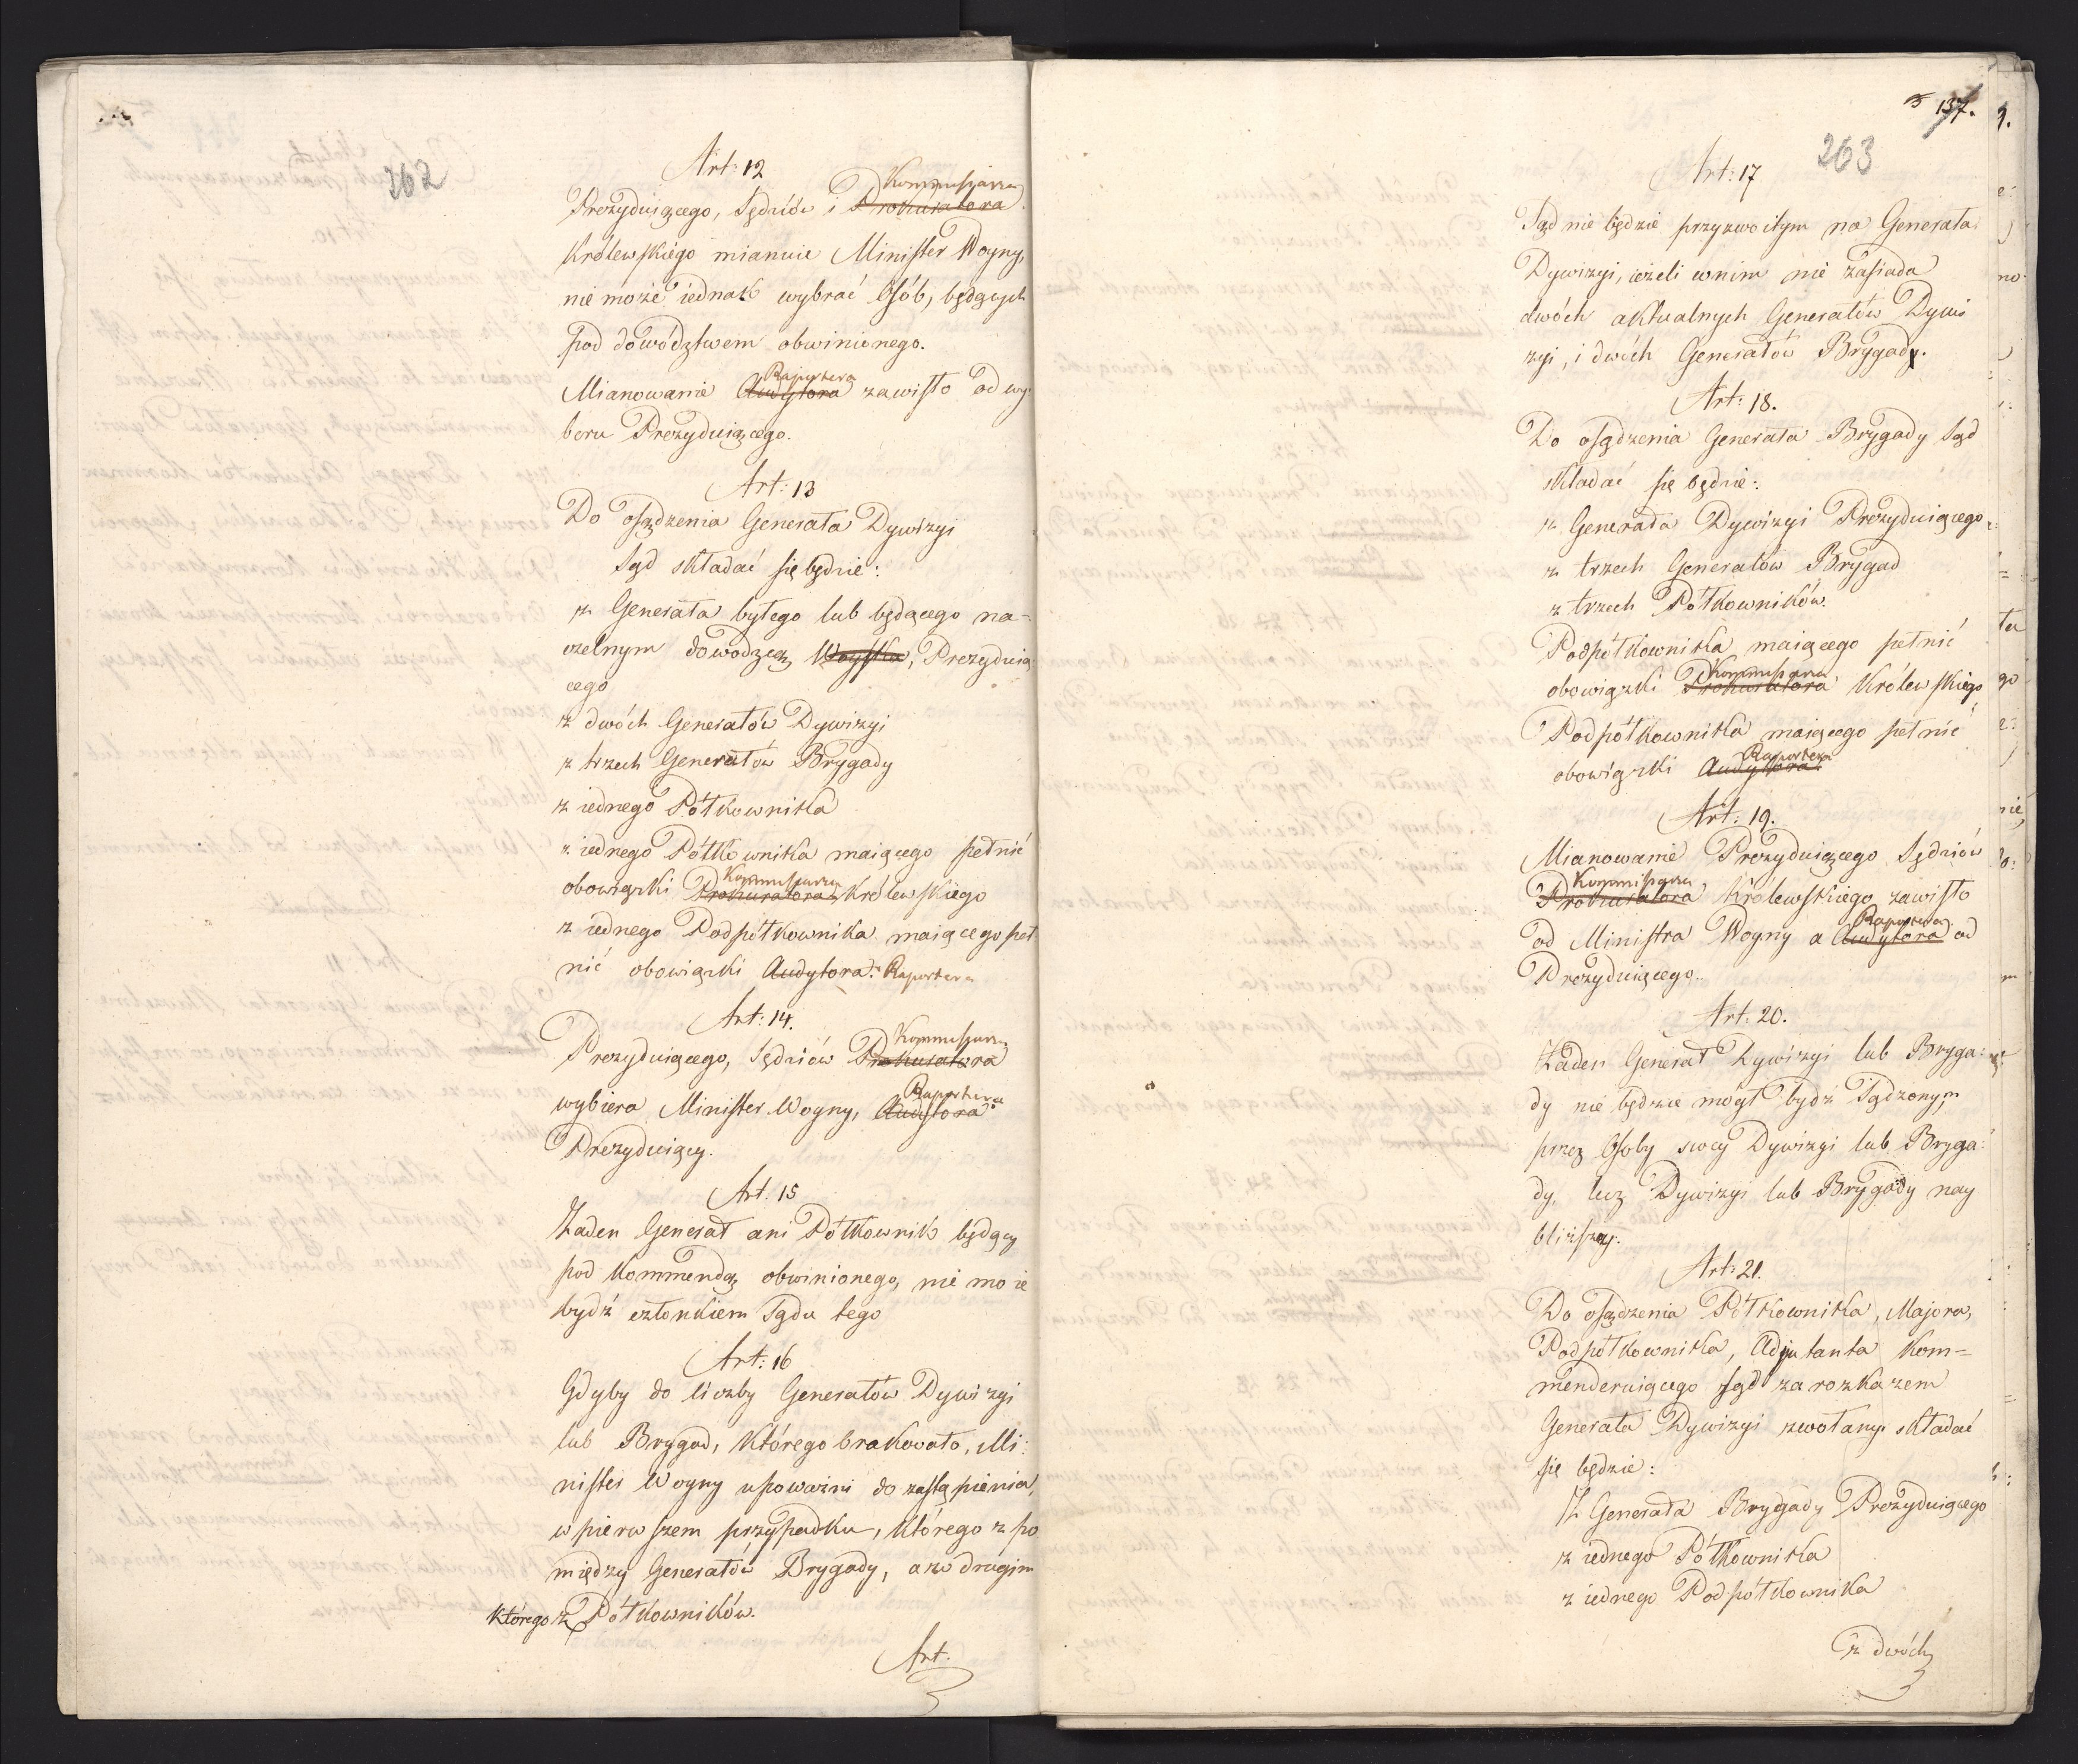 262
Art: 12
Kommissarza
Prezyduiącego, Sędziów i Prokuratora
Królewskiego mianuie Minister Woyny,
nie może iednak wybrać Osób, będących
pod dowództwem obwinionego.
Raportera
Mianowanie Audytora zawisło od wy-
boru Prezyduiącego.
Art: 13
Do osądzenia Generała Dywizyi
Sąd składać się będzie:
z Generała byłego lub będącego na=
czelnym dowodzcą Woyska, Prezyduią
cego
z dwóch Generałów Dywizyi
z trzech Generałów Brygady
z iednego Półkownika
z iednego Półkownika maiącego pełnić
Kommissarza
obowiązki Prokuratora Królewskiego
z iednego Podpółkownika maiącego peł
nić obowiązki Audytora. Raportera
Art: 14.
Kommissarza
Prezyduiącego, Sędziów Prokuratora
Raportera
wybiera Minister Woyny, Audytora
Prezyduiący.
Art: 15
Żaden Generał ani Półkownik będący
pod Kommendą obwinionego, nie może
bydź członkiem Sądu tego
Art: 16
Gdyby do liczby Generałów Dywizyi
lub Brygad, którego brakowało, Mi:
nister Woyny upoważni do zastąpienia,
w pierwszem przypadku, którego z po
między Generałów Brygady, a w drugim
którego z Półkowników.
Art.
137.
263
Art: 17
Sąd nie będzie przyzwoitym na Generała
Dywizyi, ieżeli w nim nie zasiada
dwóch aktualnych Generałów Dywi
zyi, i dwóch Generałów Brygady.
Art: 18.
Do osądzenia Generała Brygady Sąd
składać się będzie:
z Generała Dywizyi Prezyduiącego
z trzech Generałów Brygad
z trzech Półkowników.
Podpółkownika maiącego pełnić
Kommissarza
obowiązki Prokuratora Królewskiego
Podpółkownika maiącego pełnić
Raportera
obowiązki Audytora.
Art: 19.
Mianowanie Prezyduiącego Sędziów
Kommissarza
Prokuratora Królewskiego zawisło
Raportera
od Ministra Woyny a Audytora od
Prezyduiącego.
Art: 20.
Żaden Generał Dywizyi lub Bryga:
dy nie będzie mógł bydź Sądzonym
przez Osoby swey Dywizyi lub Bryga:
dy, lecz Dywizyi lub Brygady nay
bliższey.
Art: 21.
Do osądzenia Półkownika, Majora,
Podpółkownika, Adjutanta Kom=
menderuiącego sąd za rozkazem
Generała Dywizyi zwołany składać
się będzie:
Z Generała Brygady Prezyduiącego
z iednego Półkownika
z iednego Podpółkownika
z dwóch